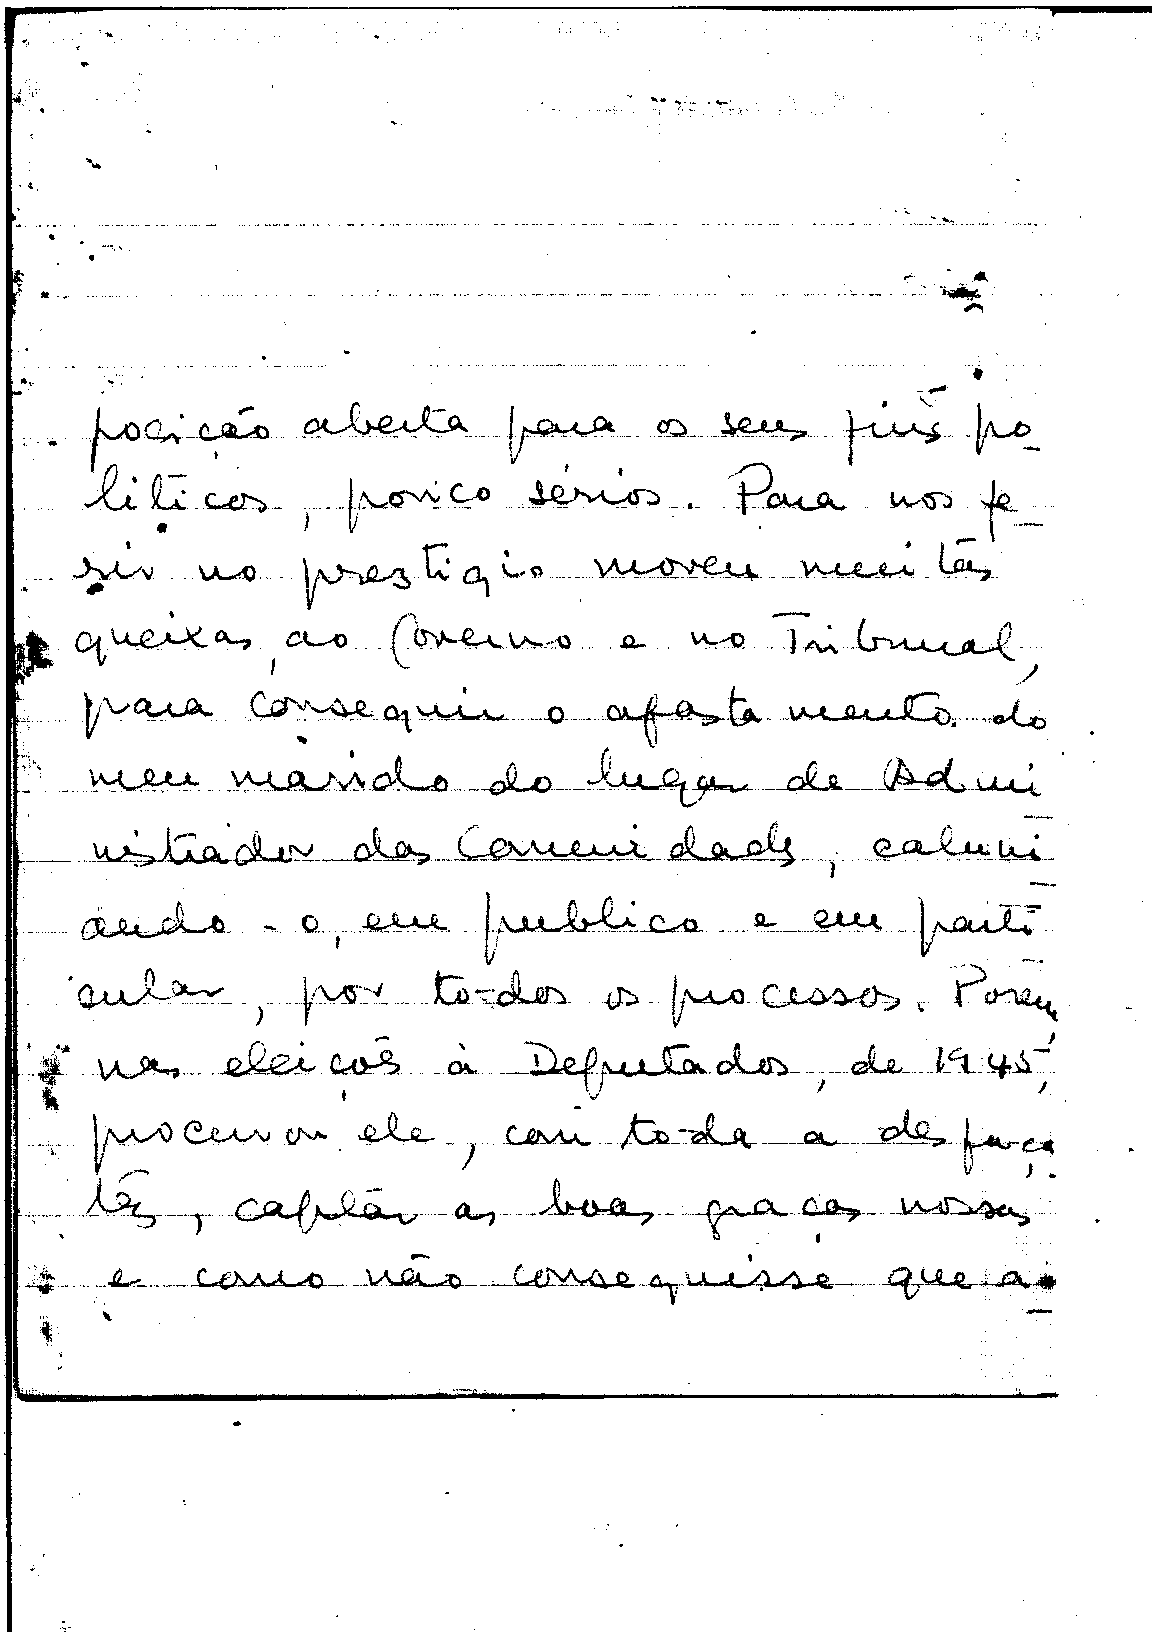 posição aberta para os seus fins po-
liticos, pouco sérios. Para nos fe-
rir no prestigio moveu muitas
queixas ao Governo e no Tribunal,
para conseguir o afastamento do
meu marido do lugar de Admi-
nistrador das Comunidades, caluni-
ando-o, em publico e em parti-
cular, por to-dos os processos. Porém,
nas eleições à Deputados, de 1945,
procurou ele, com to-da a desfaça-
tês, captár as boas graças nossas
e como não conseguisse que a-